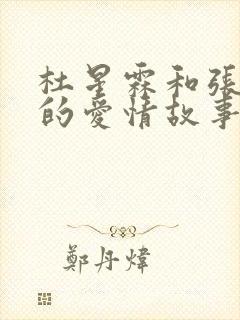 杜星霖和張
的愛情故事
鄭丹煒